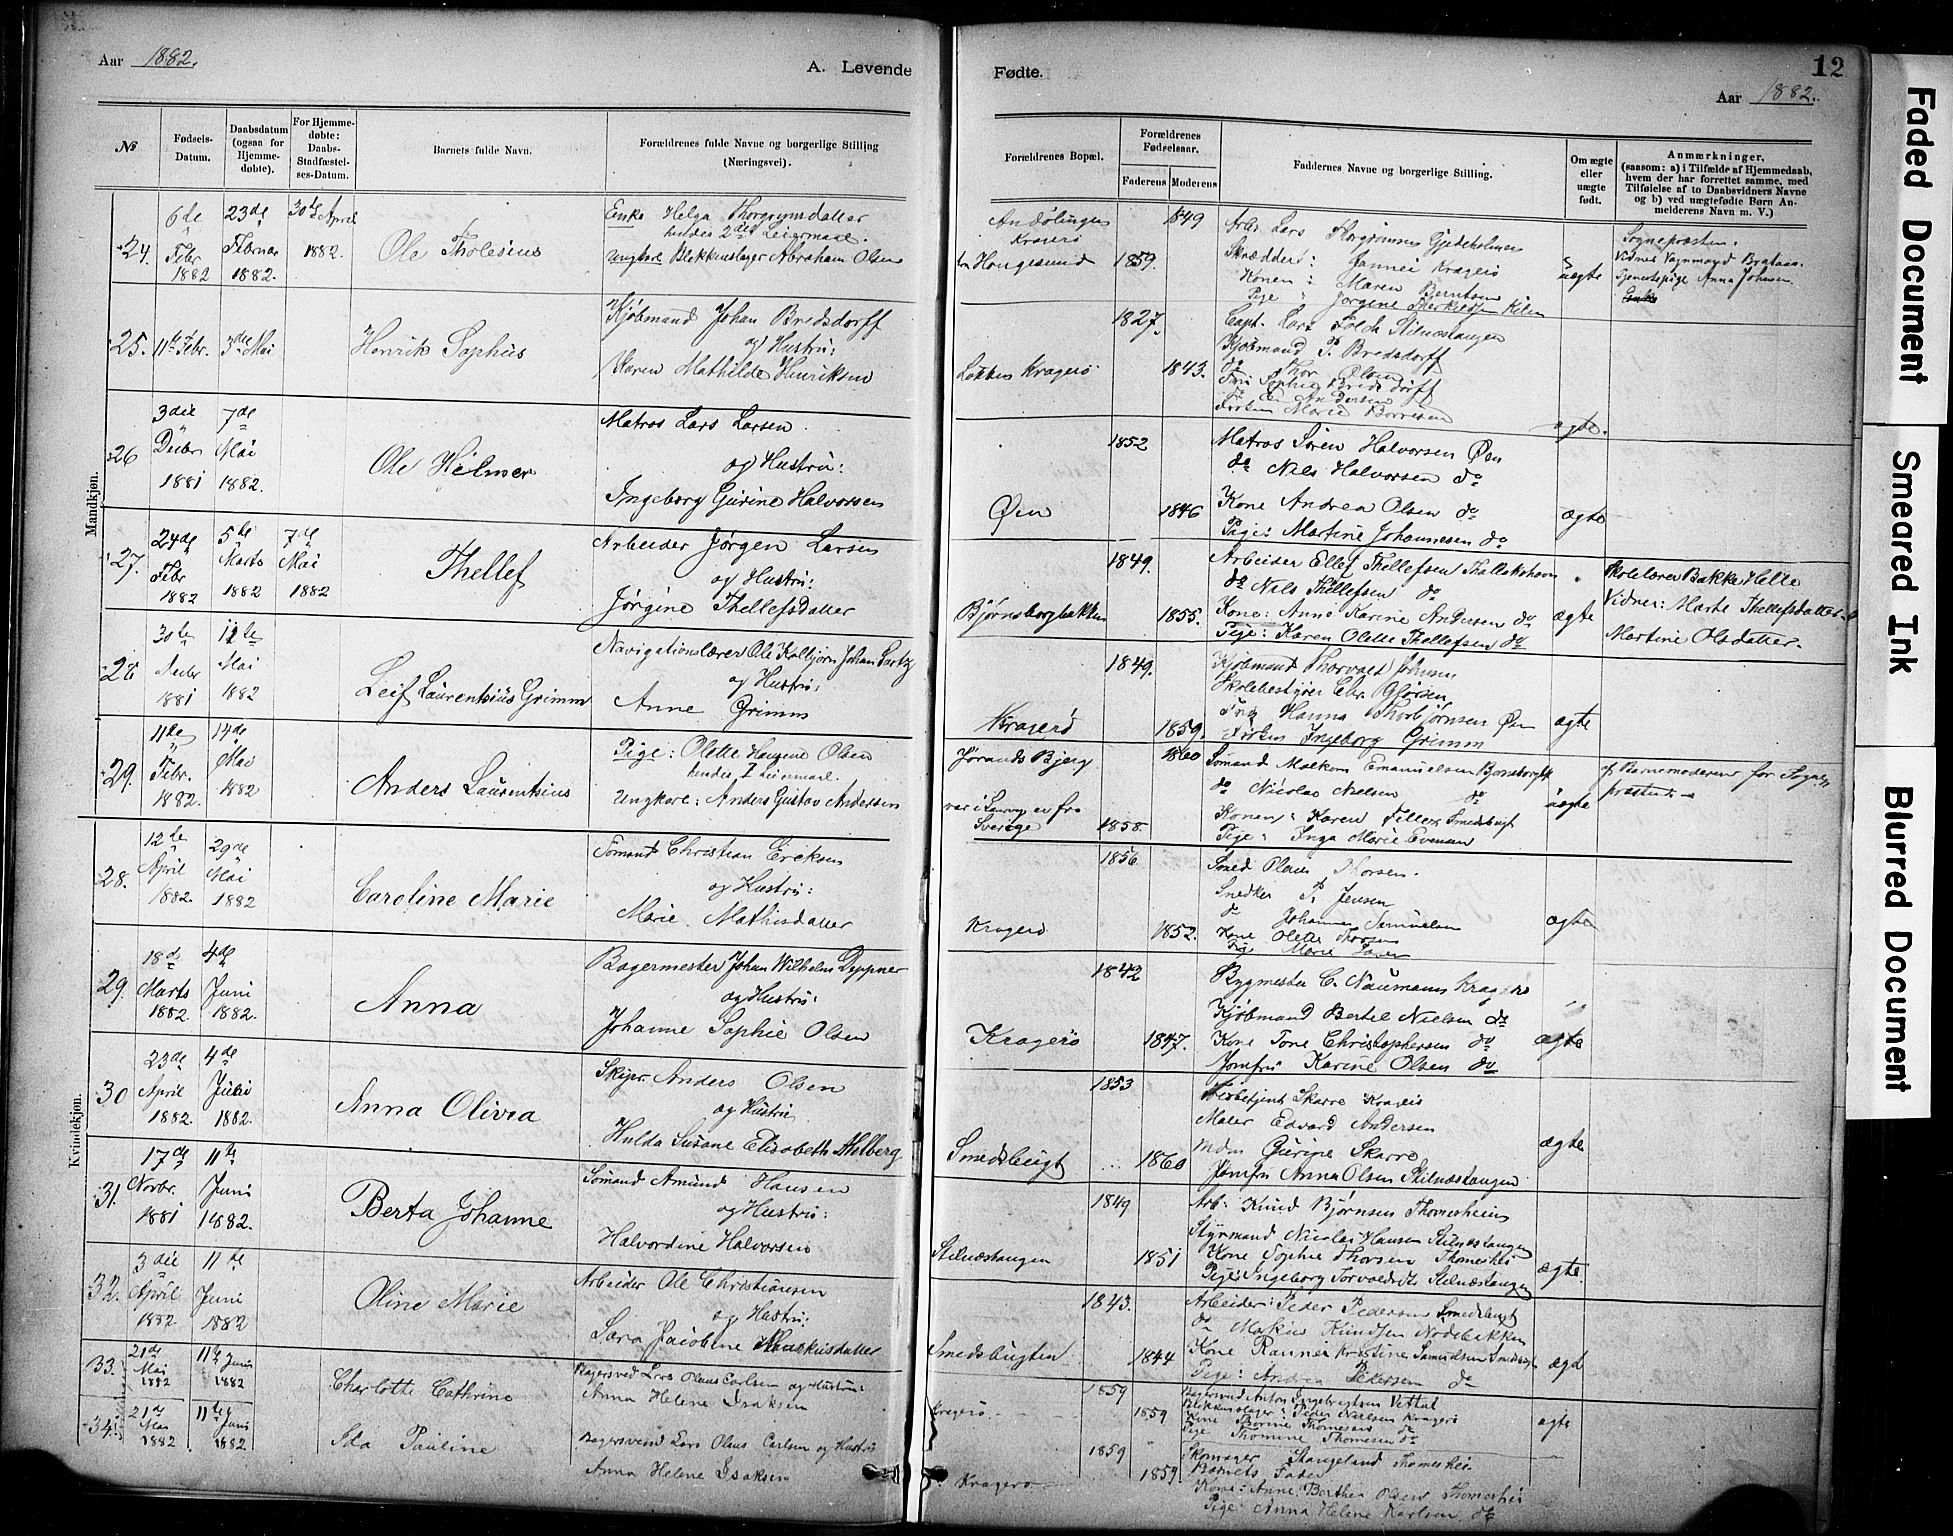 Aar 1882.
A. Levende
Fødte.
12
Aar 1882.
№
Fødsels-
Datum.
Daabsdatum
(ogsaa for
Hjemme-
døbte).
For Hjemme-
døbte:
Daabs-
Stadfæstel-
ses-Datum.
Barnets fulde Navn.
Forældrenes fulde Navne og borgerlige Stilling
(Næringsvei).
Forældrenes Bopæl.
Forældrenes
Fødselsaar.
Faderens
Moderens
Faddernes Navne og borgerlige Stilling.
Om ægte
eller
uægte
født.
Anmærkninger.
(saasom: a) i Tilfælde af Hjemmedaab,
hvem der har forrettet samme, med
Tilføielse af to Daabsvidners Navne
og b) ved uægtefødte Børn An-
melderens Navn m. V.)
Mandkjøn.
24.
6de
Febr
1882
23de
Februar
1882.
30te April
1882.
Ole Tholesius
Enke Helga Thorgrimsdatter
hendes 2det Leiermaal.
Ungkarl Blikkenslager Abraham Olsen
Kragerø
1849
1859.
Arb. Lars Thorgrimsen
Skrædder: Kragerø
Konen: Maren Berntsen
Pige
uægte
Sognepræsten.
Anna Johnsen
25.
11te Febr.
3die Mai
Henrik Sophus
Kjøbmand Johan Bredsdorff
og Hustru:
Karen Mathilde Henriksen
Kragerø
1827.
1843.
Capt. Lars Stilnæstangen
Kjøbmand P. Bredsdorff
do Thor Olsen
Fru Sophie Bredsdorff
ægte.
26
3die
Decbr
1881
7de
Mai
1882.
Ole Hilmer
Matros Lars Larsen
og Hustru:
Ingeborg Gurine Halvorsen
Øen
1852
1846
Matros Søren Halvorsen Øen
do Nils Halvorsen do
Kone Andrea Olsen do
Pige: Martine Johannesen do
ægte
27.
24de
Febr
1882
5te
Marts
1882
7de
Mai
1882
Thellef
Arbeider Jørgen Larsen
og Hustru:
Jørgine Thellefsdatter
Bjørnsborgbakken
1849.
1855.
Arbeider Ellef Thellefsen
do Nils Thellefsen do
Kone: Anne Karine Andersen do
Pige: Karen Olette Thellefsen do
ægte
Skolelærer Bakke Helle
Vidner: Marte Thellefsdatter
Martine Olsdatter.
28
30te
1881
Mai
1882
Leif Laurentsius Grimm
Navigationslærer Ole Kolbjørn Johan
og Hustru;
Anne Grimm
Kragerø
1849.
1859.
Kjøbmand Thorvald Johnsen
Skolebestyrer Chr.
Hanna Thorbjørnsen Øen
Frøken Ingeborg Grimm
ægte
29.
11te
Febr.
1882.
14de
Mai
1882
Anders Laurentsius
Pige: Olette Olsen
hendes I Leiermaal.
Ungkarl: Anders Gustav Andersen
Jørands Bjerg
Sverige
1860
1858.
Sømand Emanuelsen
do Nicolao Nielsen do
Konen: Karen Smedsbugt
Pige: Inga Marie Evensen
uægte
af Barnemoderen for Sogne-
præsten.
Kvindekjøn.
28.
12te
April
1882.
29de
Mai
1882
Caroline Marie
Sømand Christian Eriksen
og Hustru:
Marie Mathisdatter
Kragerø
1856
1852.
Smed Olaus Thorsen.
Snedker P. Jensen
do Johannes Samuelsen
Kone Olette Thorsen
Pige Marie
ægte
29.
18de
Marts
1882.
4de
Juni
1882.
Anna
Bagermester Johan Wilhelm Deppner
og Hustru:
Johanne Sophie Olsen
Kragerø
1842
1847.
Bygmester C. Naumann Kragerø
Kjøbmand Bertel Nielsen do
Kone Tone Christophersen do
Jomfru Karine Olsen do
ægte
30
23de
April
1882
4de
Juni
1882.
Anna Olivia
Skipr. Anders Olsen
og Hustru
Hulda Susane Elisabeth Ahlberg
Smedsbugt
1853
1860
Skarre Kragerø
Maler Edvard Andersen
Mdm Gurine Skarre
Jomfru Anna Olsen Stilnæstangen
ægte
31.
17de
Novbr.
1881
11te
Juni
1882.
Berta Johanne
Sømand Amund Hansen
og Hustru:
Halvordine Halvorsen
Stilnæstangen
1849
1851
Arb: Knud Bjørnsen Thomesheien
Styrmand Nicolai Hansen Stilnæstangen
Kone Sophie Thorsen Thomeshei
Pige: Ingeborg Torvaldsdt Stilnæstangen
ægte
32.
3die
April
1882
11te
Juni
1882
Oline Marie
Arbeider Ole Christiansen
og Hustru:
Sara Jacobine
Smedsbugten
1843.
1844
Arbeider: Peder Pedersen Smedsbugt
do Markus Knudsen Nodebakken
Kone Kristine Samuelsen
Pige: Andrea Pedersen do
ægt
33.
21de
Mai
1882
11te Juni
1882
Charlotte Cathrine
Bagersvend Lars Olaus Carlsen og Hustru:
Anna Helene Isaksen
Kragerø
1859
1859
Bagersvend Anton Ingebrigtsen
Blikkenslager: Peder Nielsen Kragerø
Kone Thomesen do
Pige Thomine Thomesen do
ægte
34.
21de
Mai
1882
11te
Juni
1882
Ida Pauline
Bagersvend Lars Olaus Carlsen og Hustru
Anna Helene Isaksen
Kragerø
1859
1859
Skomager Stangeland Thomeshei
Barnets Fader
Kone: Anne Berthea Olsen Thomeshei
Pige: Anna Helene Karlsen do
Faded Document
Smeared Ink
Blurred Document